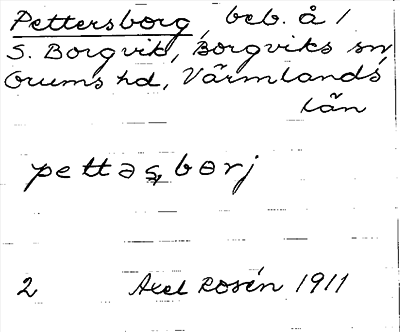 Pettersborg, beb. å /
S. Borgvik, Borgviks sn,
Grums hd, Värmlands
län
pettəʂbɵrj
2 Axel Rosén 1911